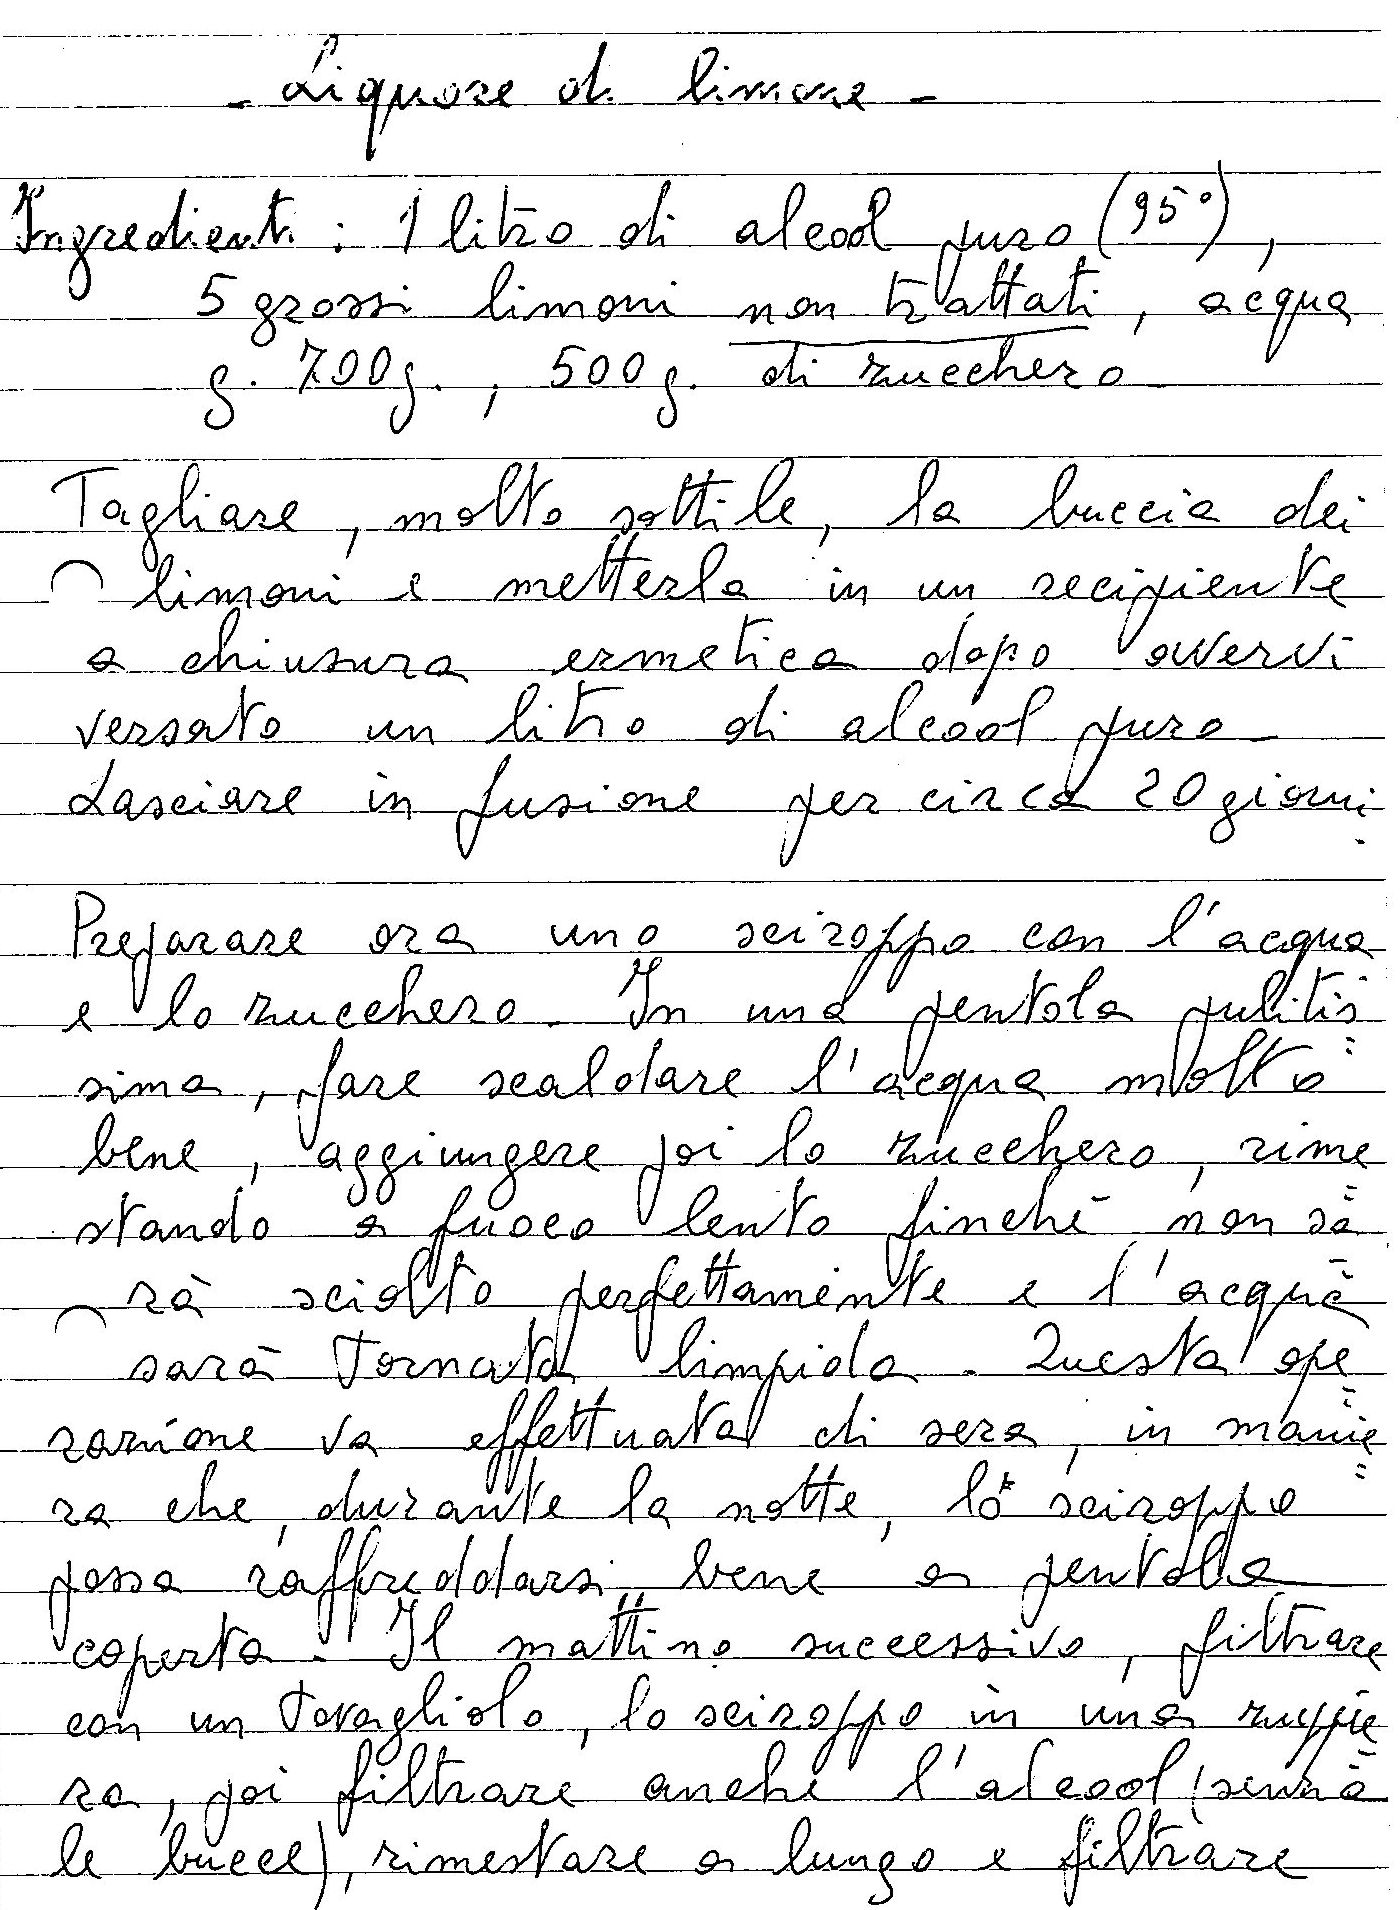 - Liquore di limone -
Ingredienti : 1 litro di alcool puro (95°),
5 grossi limoni non trattati, acqua
g. 700g. , 500g. di zucchero
Tagliare, molto sottile, la buccia dei
limoni e metterla in un recipiente
a chiusura ermetica dopo avervi
versato un litro di alcool puro -
Lasciare in fusione per circa 20 giorni.
Preparare ora uno sciroppo con l'acqua
e lo zucchero. In una pentola pulitis=
sima, fare scaldare l'acqua molto
bene, aggiungere poi lo zucchero, rime=
stando a fuoco lento finchè non sa=
rà sciolto perfettamente e l'acqua
sarà tornata limpida. Questa ope=
razione va effettuata di sera, in manie=
ra che, durante la notte, lo sciroppo
possa raffreddarsi bene a pentola
coperta. Il mattino successivo, filtrare
con un tovagliolo, lo sciroppo in una zuppie=
ra, poi filtrare anche l'alcool (senza
le bucce), rimestare a lungo e filtrare